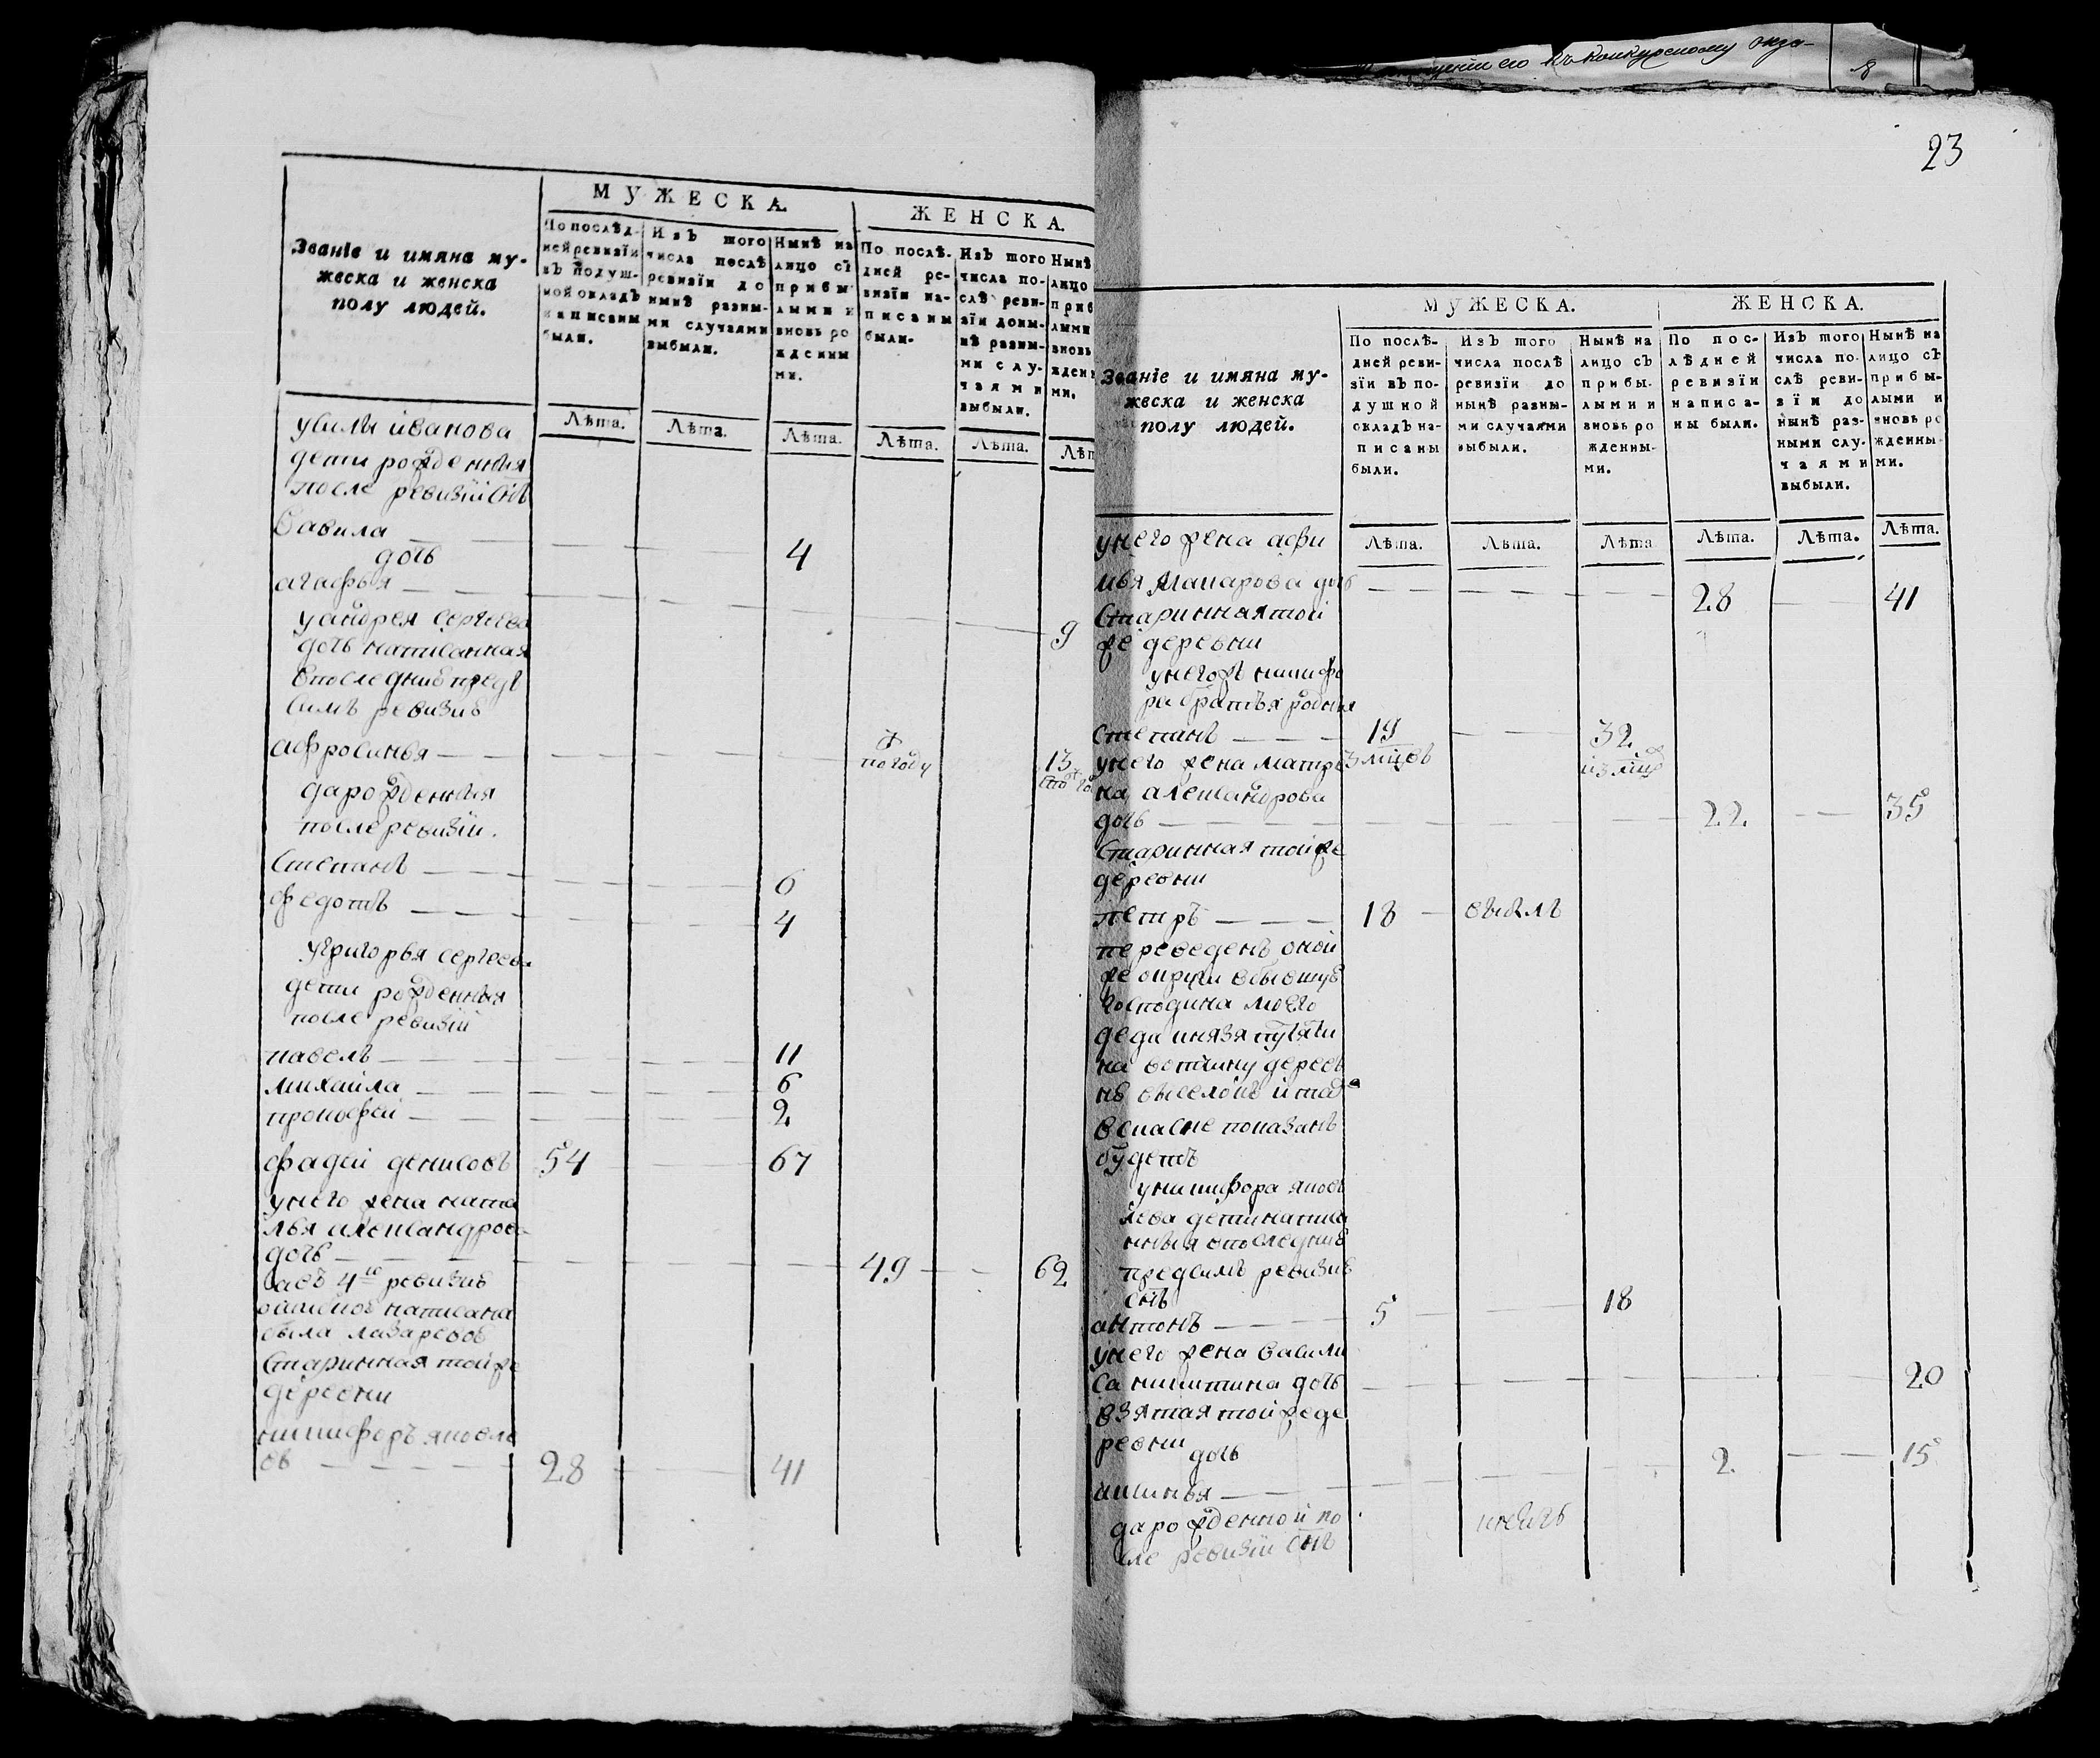 къ конкурсному
8
МУЖЕСКА.
ЖЕНСКА.
Званіе и имяна му-
жеска и женска
полу людей.
По послѣд-
ней ревизіи
въ подуш-
ной окладъ
написаны
были.
Изъ того
числа послѣ
ревизіи до
нынѣ разны-
ми случаями
выбыли.
Нынѣ на
лицо съ
прибы
лыми и
вновь ро
жденны
ми.
По послѣ-
дней ре-
визіи на-
писаны
были.
Изъ того
числа по-
слѣ реви-
зіи доны-
нѣ разны-
ми слу-
чаями
выбыли.
Нынѣ
лицо
приб
лыми
вновь
жден
ми.
Лѣта. Лѣта. Лѣта. Лѣта. Лѣта. Лѣт
иванова
дети рожденныя
после ревизіи снъ
Вавила 4
дочь
агафья 9
у андрея сергеева
дочь написанная
в последнив предъ
симъ ревизив
афросинья погоду 13
да рожденныя
после ревизіи.
Степанъ 6
федотъ 4
у григорья сергеева
дети рожденныя
после ревизіи
павелъ 11
михаила 6
прокофеи 2
фадеи денисовъ 54 67
у него жена ната
лья александрова
дочь 49 62
4 ревизив
написана
была лазаревов
Старинная той же
деревни
никифоръ яковле
въ 28 41
23
МУЖЕСКА.
ЖЕНСКА.
Званіе и имяна му-
жеска и женска
полу людей.
По послѣ-
дней реви-
зіи въ по-
душной
окладъ на-
писаны
были.
Изъ того
числа послѣ
ревизіи до
нынѣ разны-
ми случаями
выбыли.
Нынѣ на
лицо съ
прибы-
лыми и
вновь ро
жденны-
ми.
По пос-
лѣдней
ревизіи
написа-
ны были.
Изъ того
числа по-
слѣ реви-
зіи до
нынѣ раз-
ными слу-
чаями
выбыли.
Нынѣ на
лицо съ
прибы-
лыми и
вновь ро
жденны
ми.
Лѣта. Лѣта. Лѣта Лѣта. Лѣта. Лѣта.
у него жена афи
мья Макарова дочь 28 41
Старинная той
же деревни
у негожъ никифо
ра братья родныя
степанъ 19 32
у него жена матре
на александрова
дочь 22 35
Старинная той же
деревни
петръ 18 выбылъ
переведенъ оной
же округи в бывшую
господина моего
деда князя путяти
на вотчину деревъ
ню
в скаске показанъ
будетъ
у никифора яковъ
лева дети написа
нныя в последнив
предсимъ ревизив
снъ
антонъ 5 18
у него жена васили
са никитина дочь 20
взятая той же де
ревни
дочь 2 15
аксинья
да рожденной по
сле ревизіи снъ